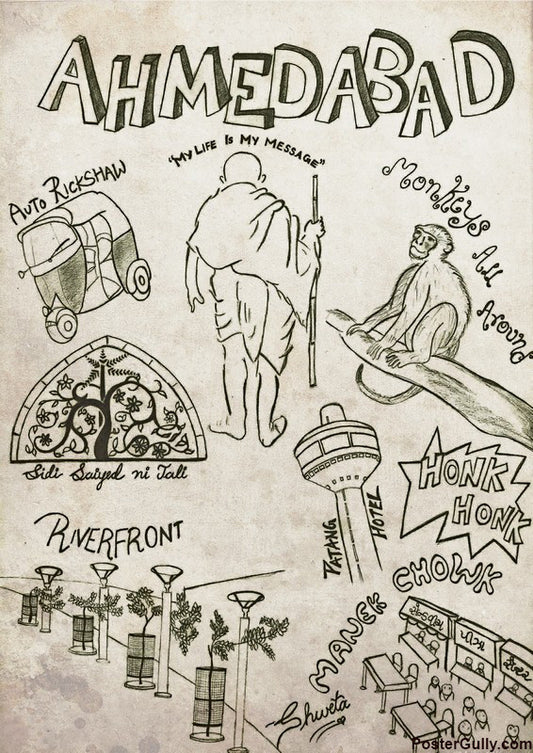 AHMEDABAD
"MY LIFE IS MY MESSAGE"
AUTO RICKSHAW
MONKEYS ALL AROUND
Sidi Saiyed ni Jali
HONK
HONK
PATANG HOTEL
RIVERFRONT
MANEK CHOWK
Shweta
PosterGully.com